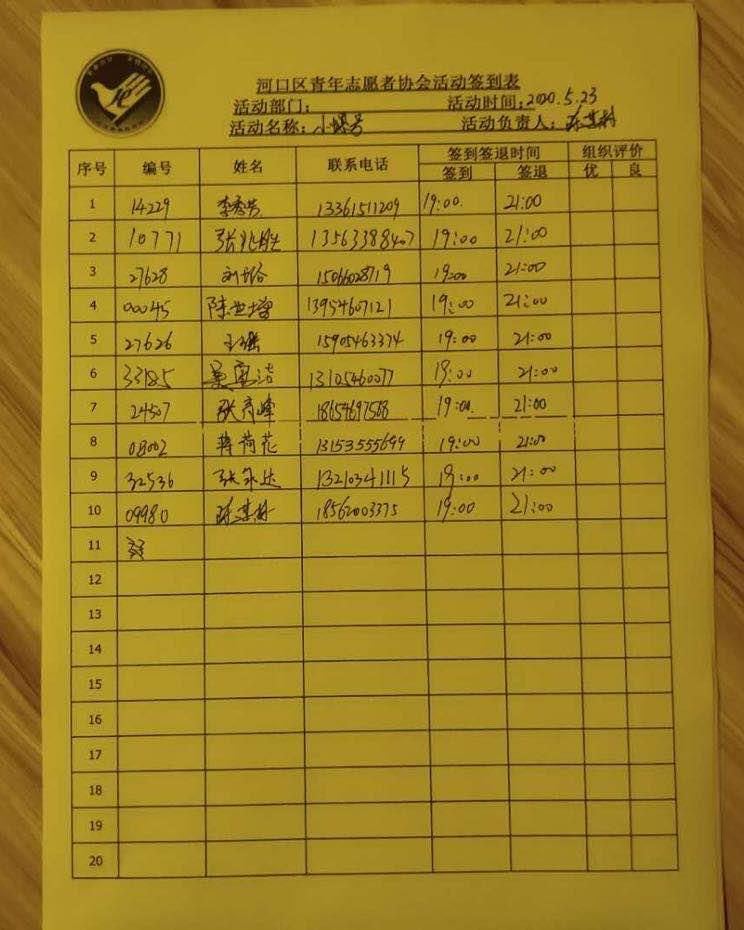 河口区青年志愿者协会活动签到表
活动部门： 活动时间：2020.5.23
活动名称：小蜾号 活动负责人：
序号 编号 姓名 联系电话 签到签退时间 组织评价
签到 签退 优 良
1 14229 李秀芳 13361511209 19:00 21:00
2 10771 张兆胜 13563388407 19:00 21:00
3 27628 15066028719 19:00 21:00
4 00045 陈世增 13954607121 19:00 21:00
5 27626 15905463374 19:00 21:00
6 33185 13105460077 19:00 21:00
7 24507 张育峰 18654697568 19:00 21:00
8 08002 蒋荷花 13153555699 19:00 21:00
9 32536 张永达 13210341115 19:00 21:00
10 09980 18562003375 19:00 21:00
11
12
13
14
15
16
17
18
19
20